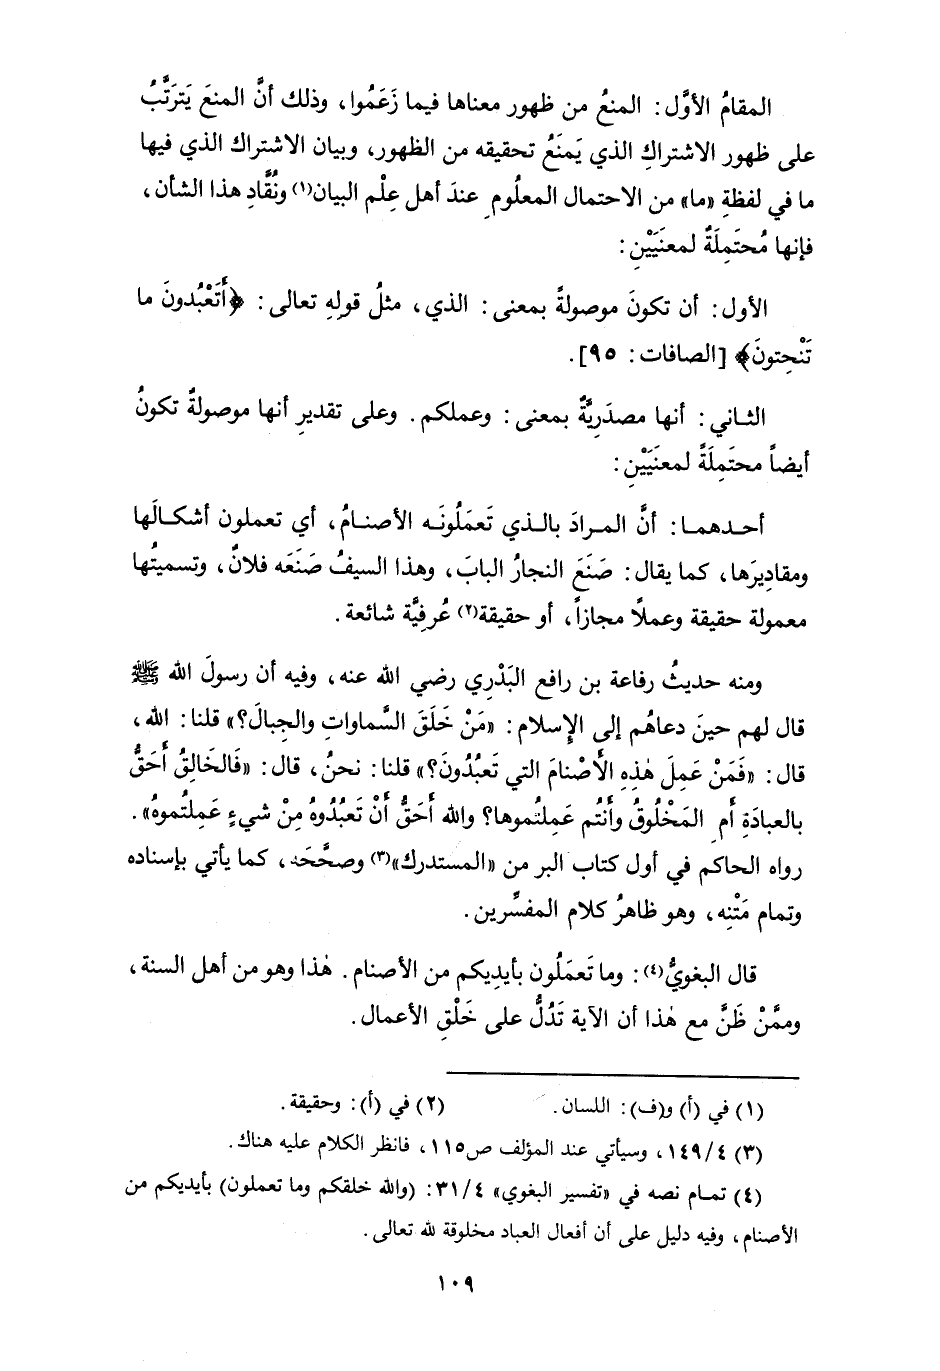 المقامُ الأوَّل: المنعُ من ظهور معناها فيما زَعَمُوا، وذلك أنَّ المنعَ يَترَتَّبُ
على ظهور الاشتراكِ الذي يَمنَعُ تحقيقه من الظهور، وبيان الاشتراك الذي فيها
ما في لفظةِ «ما» من الاحتمال المعلُوم عندَ أهل عِلْم البيان(١) ونُقَّادِ هذا الشأن،
فإنها مُحتَمِلَةٌ لمعنَيَيْنِ:
الأول: أن تكونَ موصولةً بمعنى: الذي، مثلُ قولِهِ تعالى: ﴿أَتَعْبُدونَ ما
تَنْحِتونَ﴾ [الصافات: ٩٥].
الثاني: أنها مصدَرِيَّةٌ بمعنى: وعملكم. وعلى تقديرِ أنها موصولةٌ تكونُ
أيضاً محتَمِلَةً لمعنَيَيْنِ:
أحدهما: أنَّ المرادَ بالذي تَعمَلُونَه الأصنامُ، أي تعملون أشكالَها
ومقاديرَها، كما يقال: صَنَعَ النجارُ البابَ، وهذا السيفُ صَنَعَه فلانٌ، وتسميتُها
معمولة حقيقة وعملًا مجازاً، أو حقيقة(٢) عُرفِيَّة شائعة.
ومنه حديثُ رفاعة بن رافع البَدْري رضي الله عنه، وفيه أن رسولَ الله ﷺ
قال لهم حينَ دعاهُم إلى الإسلام: «مَنْ خَلَقَ السَّماواتِ والجِبالَ؟» قلنا: الله،
قال: «فَمَنْ عَمِلَ هٰذِهِ الأَصْنامَ التي تَعبُدُونَ؟» قلنا: نحنُ، قال: «فَالخَالِقُ أَحَقُّ
بالعبادَةِ أَمِ المَخْلُوقُ وأَنْتُم عَمِلتُموها؟ والله أَحَقُّ أَنْ تَعبُدُوهُ مِنْ شيءٍ عَمِلتُموهُ».
رواه الحاكم في أول كتاب البر من «المستدرك»(٣) وصحَّحَه، كما يأتي بإسناده
وتمام مَتْنِه، وهو ظاهرُ كلام المفسِّرين.
قال البغويُّ(٤): وما تَعمَلُون بأيدِيكم من الأصنام. هٰذا وهو من أهل السنة،
وممَّنْ ظَنَّ مع هٰذا أن الآية تَدُلُّ على خَلْقِ الأعمال.
(١) في (أ) و(ف): اللسان. (٢) في (أ): وحقيقة.
(٣) ١٤٩/٤، وسيأتي عند المؤلف ص١١٥، فانظر الكلام عليه هناك.
(٤) تمام نصه في «تفسير البغوي» ٣١/٤: (والله خلقكم وما تعملون) بأيديكم من
الأصنام، وفيه دليل على أن أفعال العباد مخلوقة لله تعالى.
١٠٩